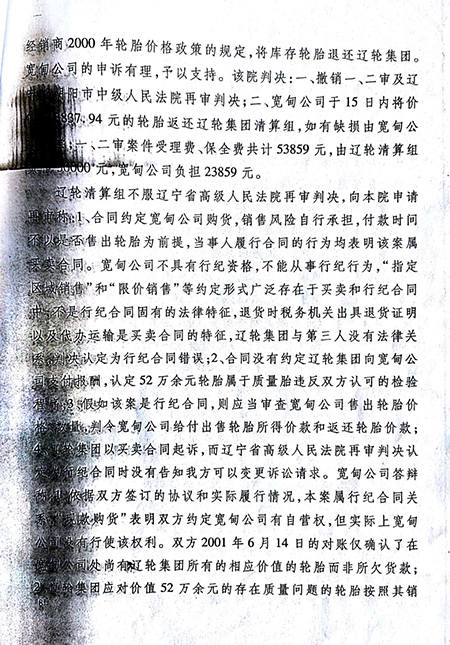 经销商2000年轮胎价格政策的规定，将库存轮胎退还辽轮集团。
宽甸公司的申诉有理，予以支持。该院判决：一、撤销一、二审及辽
阳市中级人民法院再审判决；二、宽甸公司于15日内将价
837.94元的轮胎返还辽轮集团清算组，如有缺损由宽甸公
；一、二审案件受理费、保全费共计53859元，由辽轮清算组
0000元，宽甸公司负担23859元。
辽轮清算组不服辽宁省高级人民法院再审判决，向本院申请
称：1、合同约定宽甸公司购货，销售风险自行承担，付款时间
不以是否售出轮胎为前提，当事人履行合同的行为均表明该案属
买卖合同。宽甸公司不具有行纪资格，不能从事行纪行为，“指定
区域销售”和“限价销售”等约定形式广泛存在于买卖和行纪合同
中，不是行纪合同固有的法律特征，退货时税务机关出具退货证明
以及代办运输是买卖合同的特征，辽轮集团与第三人没有法律关
系，判决认定为行纪合同错误；2、合同没有约定辽轮集团向宽甸公
司支付报酬，认定52万余元轮胎属于质量胎违反双方认可的检验
；3、假如该案是行纪合同，则应当审查宽甸公司售出轮胎价
量，判令宽甸公司给付出售轮胎所得价款和返还轮胎价款；
4、集团以买卖合同起诉，而辽宁省高级人民法院再审判决认
定行纪合同时没有告知我方可以变更诉讼请求。宽甸公司答辩
依据双方签订的协议和实际履行情况，本案属行纪合同关
系，“款购货”表明双方约定宽甸公司有自营权，但实际上宽甸
公司没有行使该权利。双方2001年6月14日的对账仅确认了在
公司处尚有辽轮集团所有的相应价值的轮胎而非所欠货款；
2、集团应对价值52万余元的存在质量问题的轮胎按照其销